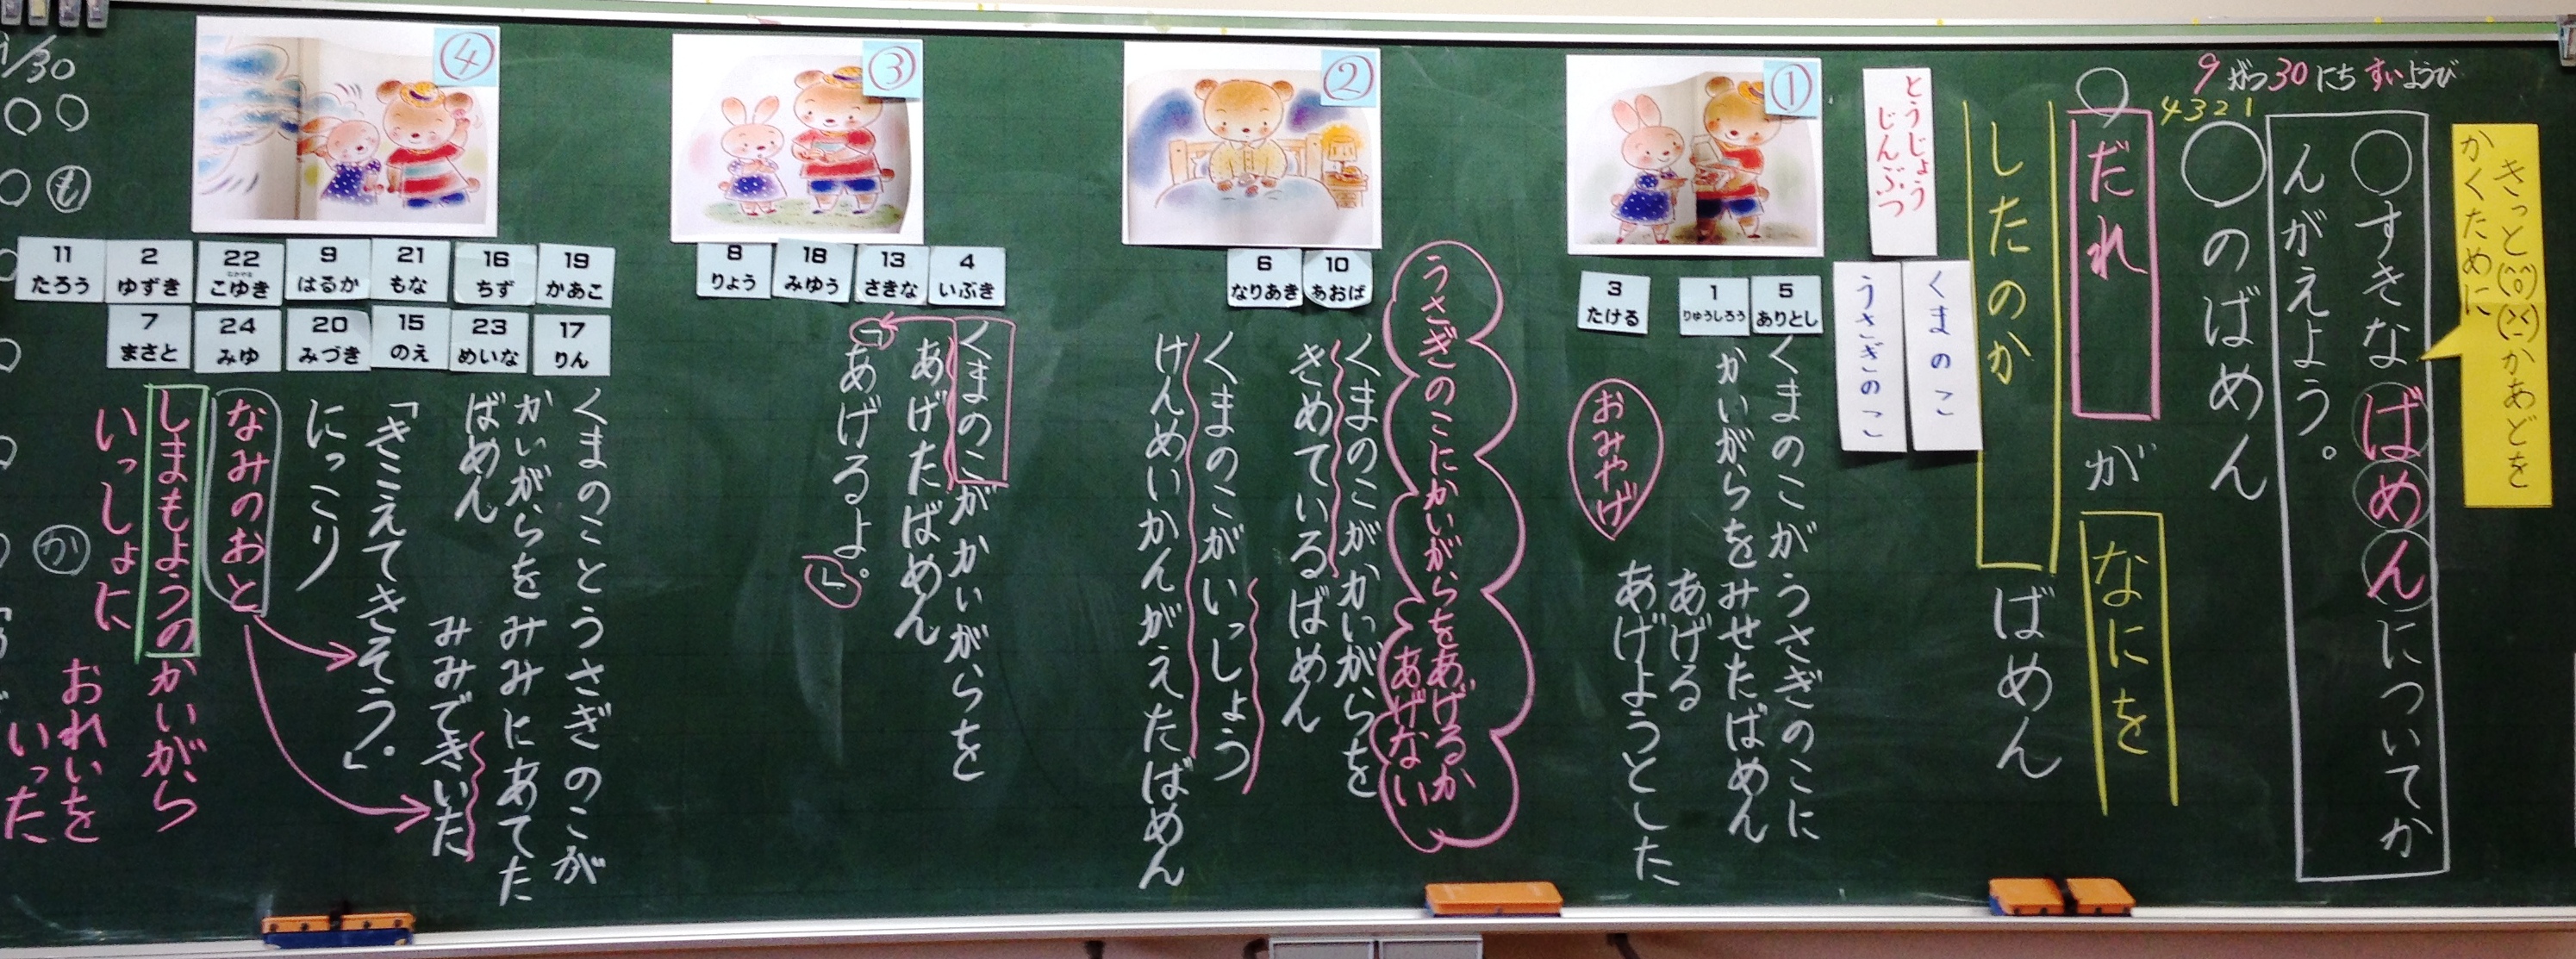 きっと
かあどを
かくために
9がつ30にちすいようび
○すきなばめんについてか
んがえよう。
4321
○のばめん
だれ
が
なにを
したのか
ばめん
とうじょう
じんぶつ
くまのこ
うさぎのこ
①
5
ありとし
1
りゅうしろう
3
たける
くまのこがうさぎのこに
かいがらをみせたばめん
あげる
あげようとした
おみやげ
うさぎのこにかいがらをあげるか
あげないか
②
10
あおば
6
なりあき
くまのこがかいがらを
きめているばめん
くまのこがいっしょう
けんめいかんがえたばめん
③
4
いぶき
13
さきな
18
みゆう
8
りょう
くまのこがかいがらを
あげたばめん
「あげるよ。」
④
19
かあこ
16
ちず
21
もな
9
はるか
22
こゆき
2
ゆずき
11
たろう
17
りん
23
めいな
15
のえ
20
みづき
24
みゆ
7
まさと
くまのことうさぎのこが
かいがらをみみにあてた
ばめん
みみできいた
「きこえてきそう。」
にっこり
なみのおと
しまもようのかいがら
いっしょに
おれいを
いった
/30
も
か